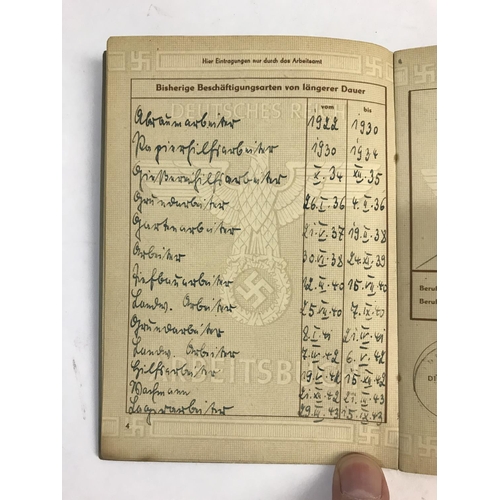 Hier Eintragungen nur durch das Arbeitsamt
Bisherige Beschäftigungsarten von längerer Dauer
DEUTSCHES REICH
vom bis
Abraumarbeiter 1922 1930
Papierhilfsarbeiter 1930 1934
Gießereihilfsarbeiter X.34 XII.35
Grundarbeiter 26.I.36 4.II.36
Gartenarbeiter 21.IV.37 19.III.38
Arbeiter 30.VI.38 24.XII.39
Tiefbauarbeiter 12.II.40 15.VI.40
Landw. Arbeiter 25.VI.40 7.IX.40
Grundarbeiter 8.I.41 21.IV.41
Landw. Arbeiter 7.IV.42 6.V.42
Hilfsarbeiter 42 15.XII.42
Wachmann 21.XII.42 43
Lagerarbeiter 43 15.IX.43
ARBEITSBUCH
4
6
Beru
Beru